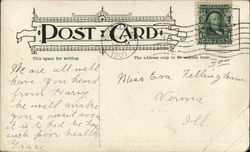 POST CARD
This space for writing
The address only to be written here
We are all well
have you heard
from Harry
he will make
you a visit soon
it is hard to
such poor health
Miss Eva Fellingham
Verona
Ill.